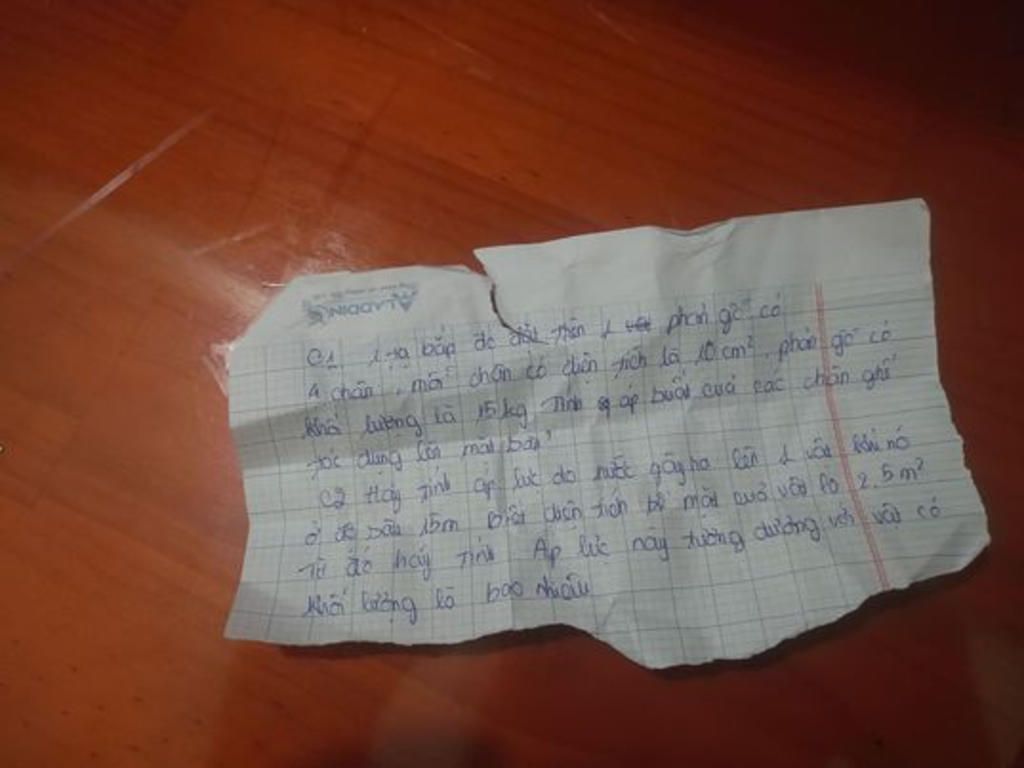 ALADDIN
C1 1 tạ bắp đó đặt trên 1 phản gỗ có
4 chân, mỗi chân có diện tích là 10cm², phản gỗ có
khối lượng là 15kg. Tính áp suất của các chân ghế
tác dụng lên mặt bàn?
C2 Hãy tính áp lực do nước gây ra lên 1 vật khi nó
ở độ sâu 15m Biết diện tích bề mặt của vật là 2.5m²
Từ đó hãy tính Áp lực này tương đương với vật có
khối lượng là bao nhiêu